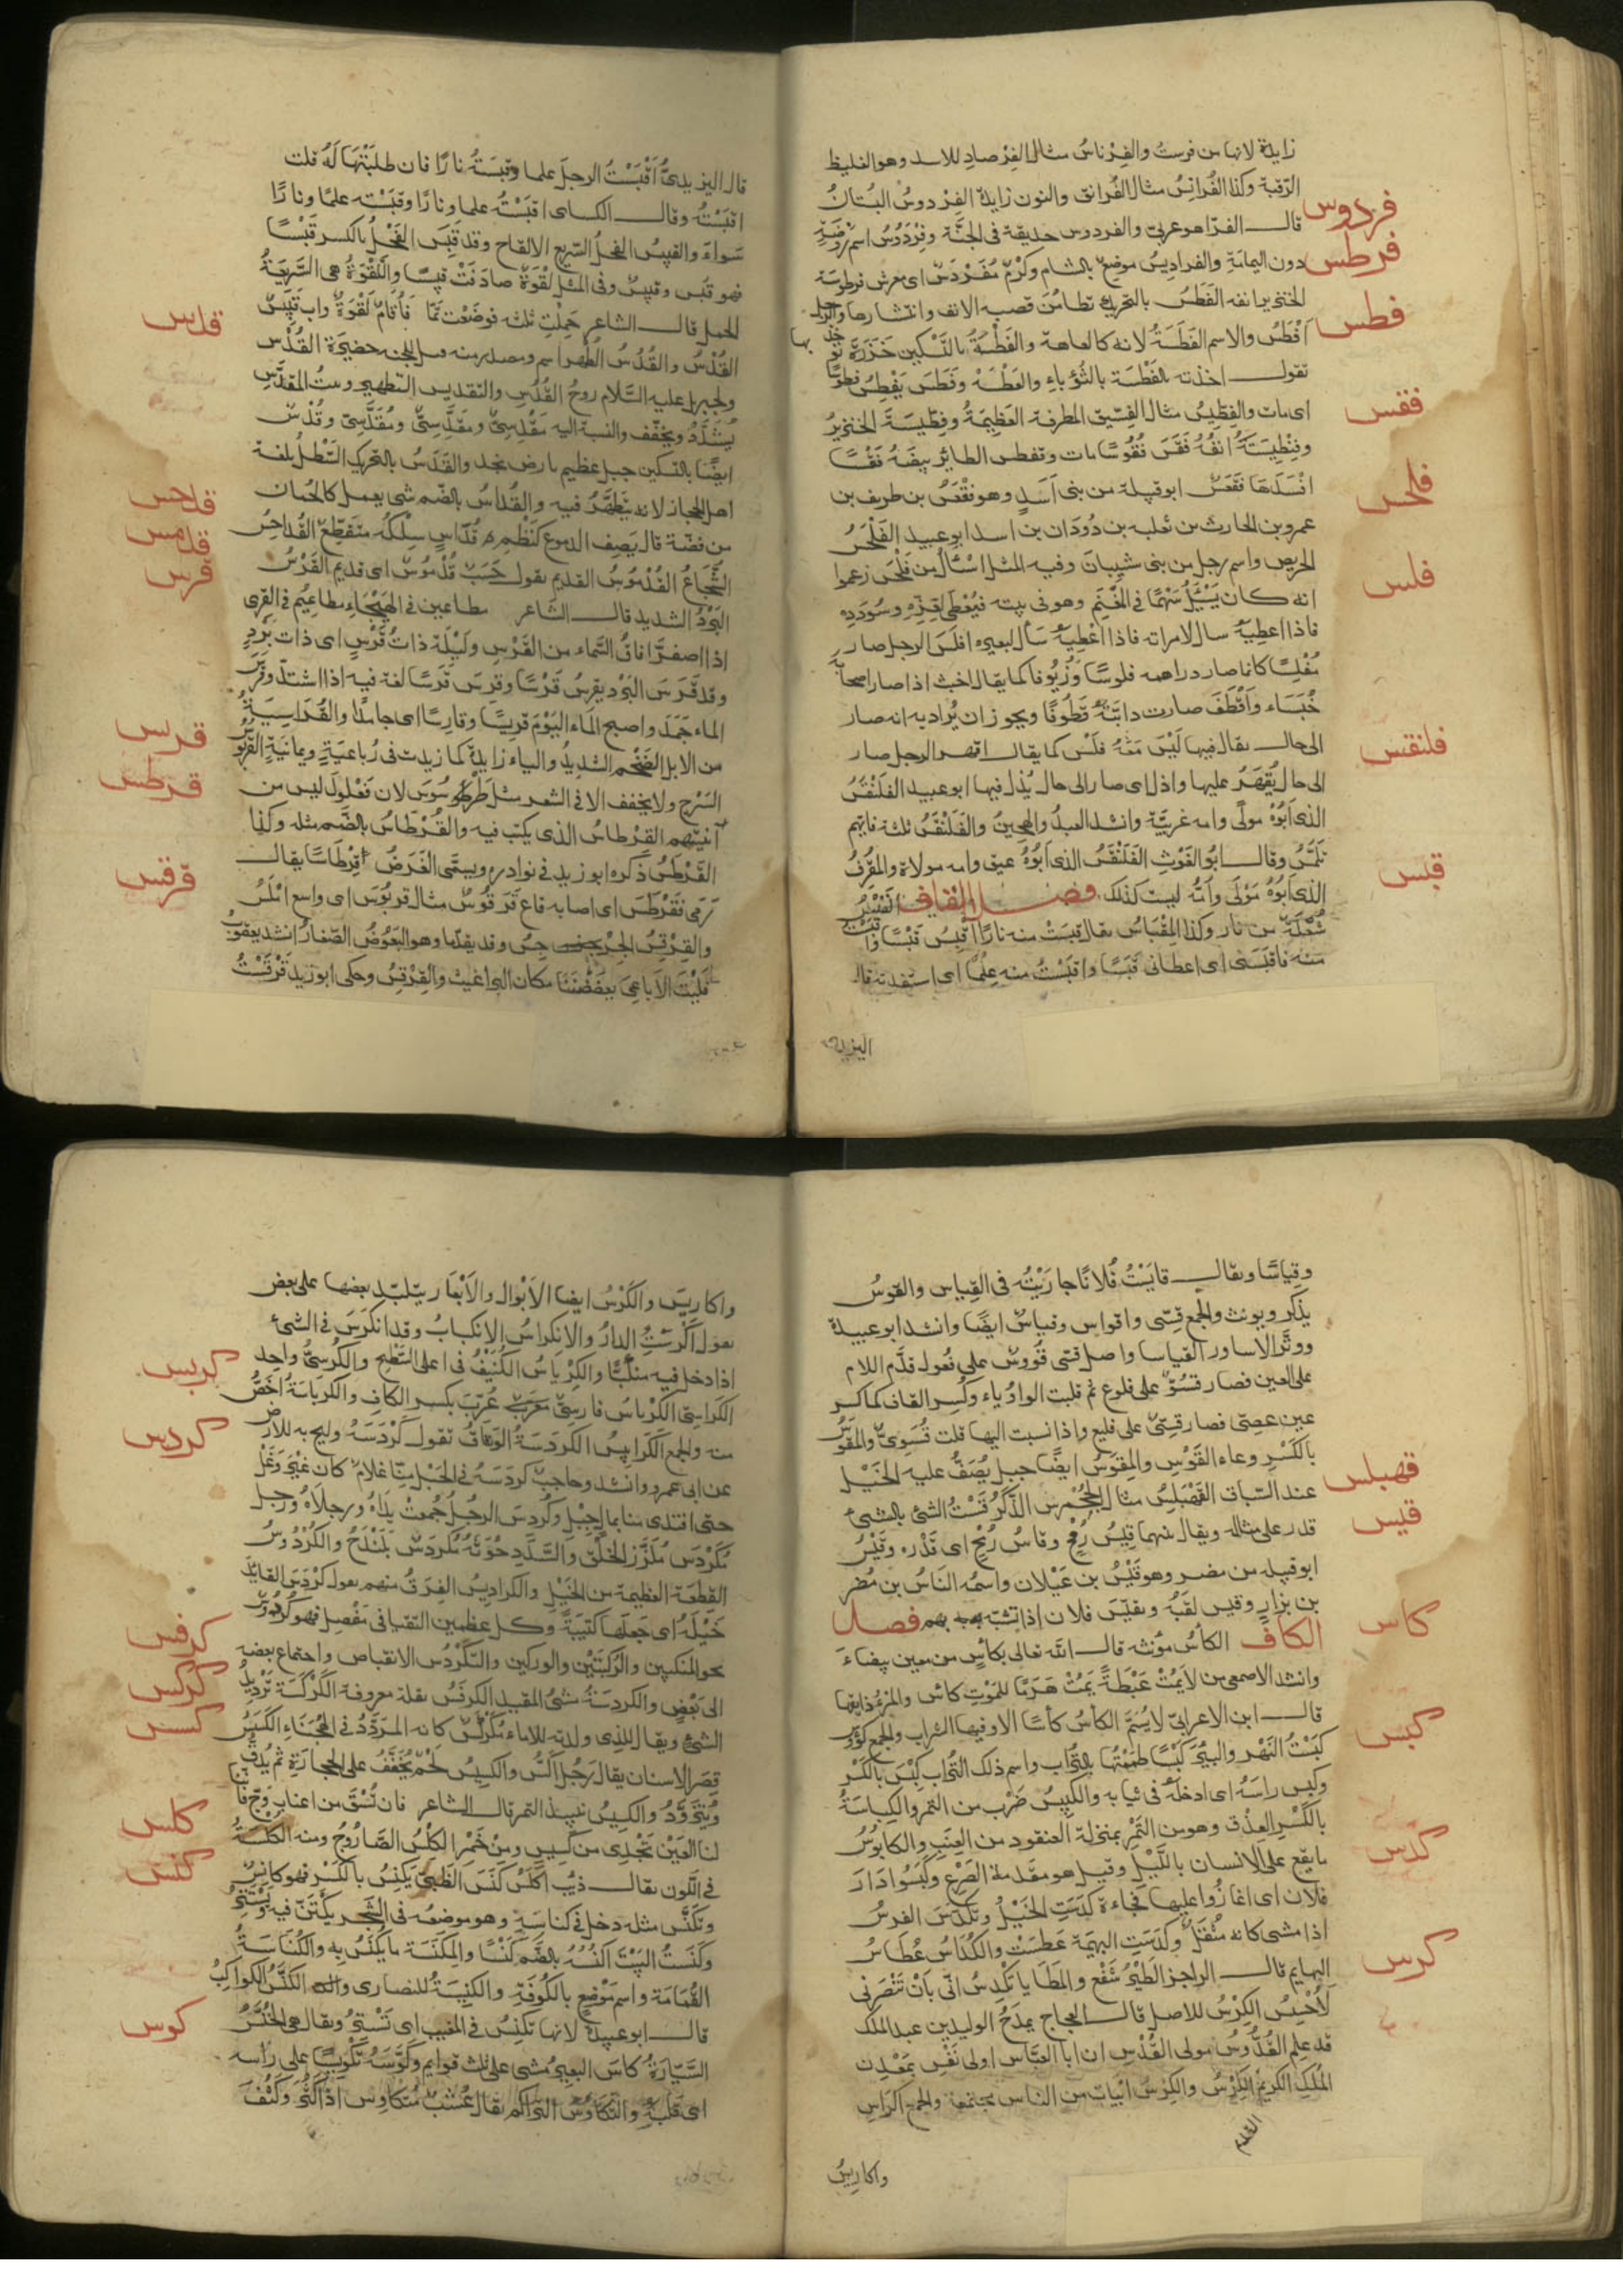 زايدة لانها من فرست والفِرْناسُ مثال الفِرْصادِ للاسد وهو الغليظ
الرّقبة وكذا الفُرانِسُ مثال الفُرانق والنون زايدة الفِرْدوسُ البُستانُ
فردوس
قال الفرّا هو عربىّ والفردوس حديقة فى الجنّة وفِرْدَوْسُ اسم رَوْضَةٍ
فرطس
دون اليمامَةِ والفراديسُ موضع بالشام وكَرْمٌ مُفَرْدَسٌ اى معرش فرطوسة
الخنزير انفه الفَطَسُ بالتحريك تطامُن قصبه الانف وانتشارها والرجل
فطس
اَفْطَسُ والاسم الفَطَسَةُ لانه كالعاهة والفَطْسَةُ بالتَّسْكِين خَرَزَةٌ يؤخذ بها
تقول اخذته بالفَطْسَة بالثُؤَباءِ والعَطْسَةْ وفَطَسَ يَفْطِسُ فطوسًا
اى مات والفِطّيسُ مثال الفِسّيق المطرقة العَظِيمَةُ وفِطّيسَة الخنزير
فقس
وفِنْطِيسَتَهُ انفُهُ فَقَسَ فُقُوسًا مات وفقس الطائر بيضَهُ فَقْسًا
افْسَدَها فَقْعَسٌ ابو قبيلة من بنى اَسَدٍ وهو فَقْعَسُ بن طريف بن
عمرو بن الحارث بن ثعلبه بن دُودَان بن اسد ابو عبيد الفَلْحَسُ
فلحس
الحريص واسم رجل من بنى شيبانَ وفيه المثل اسْئَالُ مِن فَلْحَسَ زعموا
انه كان يَسْئَلُ سَهْمًا فى الغُنْمِ وهو فى بيته فيُعْطَى لعِزّهِ وسُودَدِهِ
فلس
فاذا اعطيهُ سال لامراته فاذا اعْطِيهُ سأل لبعيره افلسَ الرجل صار
مُفْلِسًا كانما صار دراهمه فلوسًا وَزُيُوفا كما يقال اخبث اذا صار اصحابهُ
خُبَثاء وَاَقْطَفَ صارت دابّتُهُ قطُوفًا ويجوز ان يُراد به انه صار
الى حال يقال فيها لَيْسَ مَعَهُ فَلْسٌ كما يقال اقهر الرجل صار
فلنقس
الى حال يُقْهَرُ عليها واذل اى صار الى حال يُذل فيها ابو عبيد الفَلَنْقَسُ
الذى اَبُوْهُ مَوْلًى وامه عَرَبيَّة وانشد العبدُ والهجينُ والفَلَنْقَسُ ثلثة فايّهم
تَلَمَّسُ وقال ابو الغَوْثِ الفَلَنْقَسُ الذى اَبُوْهُ عربى وامه مولاة والمُقْرِفُ
قبس
الذى اَبُوْهُ مَوْلًى وامّهُ ليست كذلك فصل القاف القَبَسُ
شُعْلَةٌ من نار وكذا المِقْبَاسُ يقال قبستُ منه نارًا اَقْبِس قَبْسًا
منه فاقبَسَنى اى اعطانى قَبَسًا واقتبَسْتُ منه علمًا اى استفدته قال
اليزيدى
قال اليزيدىُّ اَقْبَسْتُ الرجلَ علما وقبَسَتُهُ نارًا فان طلبْتَهَا لَهُ قلت
اقبَسْتُهُ وقال الكساى اقبَسْتُه علما ونارًا وقبَسْته علمًا ونارًا
سَواءً والقبيسُ الفحلُ السّريعُ الالقاح وقد قبِسَ الفَحْلُ بالكسر قَبَسًا
فهو قَبِس وقبيسٌ وفى المثل لَقْوَةٌ صادَفَتْ قبيسًا واللَّقْوَةُ هى السَّرِيعَةُ
للحمل قال الشاعر حَمَلَتِ ثلثه فوضَعْت تمّا فاُمٌّ لَقْوَةٌ وابٌ قَبِيسٌ
قدس
القُدْسُ والقُدُسُ الطُهر اسم ومصدر منه قيل للجنة حضيرة القُدْسِ
ولجبريل عليه السَّلام روحُ القُدُسِ والتقديس التطهير وبيتُ المقدّسِ
يُشَدَّدُ ويخفّف والنسبة اليه مَقْدِسِىٌّ ومُقَدَّسِىٌّ وقُدْسٌ
ايضًا بالتسكين جبل عظيم بارض نجد والقَدَسُ بالتحريك السَّطلُ بلغة
اهل الحجاز لانه يتَطَهَّرُ فيه والقُدَاسُ بالضّم شئ يعمل كالجُمان
قدحس
من فضّة قال يَصِف الدموع كَنَظْمِ قُدّاسٍ سِلْكُه متقطّع القُداحِسُ
قدمس
الشُّجَاعُ القُدْمُوسُ القديم يقول حَسَبٌ قُدْمُوسٌ اى قديم القَرْسُ
قرس
البَرْدُ الشديد قال الشاعر مطاعين فى الهَيْجَاءِ مطاعِيْم فى القِرَى
اذا اصفَرَّ افاقُ السَّماء من القَرْسِ ولَيْلَة ذاتُ قَرْسٍ اى ذات بَرْدٍ
وقد قَرَسَ البَرْد يقرِسُ قَرْسًا وقرس قَرَسًا لغة فيه اذا اشتدّ وقَرَسَ
الماء جَمَدَ واصبح الماء اليَوْمَ قريسًا وقارسًا اى جامدًا والقُرَاسِيَةُ
قربس
من الابل الضَّخْم الشديدُ والياء زايدةٌ كما زيدت فى رُباعيَةٍ ويمانيَةٍ القَرَبُوسُ
قرطس
السَرْجِ ولا يخفف الا فى الشعر مثل طَرَسُوسَ لان فَعْلُولَ ليس من
ابنيتهم القِرْطاسُ الذى يكتب فيه والقُرْطاسُ بالضّم مثله وكذا
القَرْطَسُ ذكره ابو زيد فى نوادره ويسمّى الغَرَضُ قِرْطَاسًا يقال
قرقس
رَمَى فقَرْطَسَ اى اصابه قاع قَرَقُوْسٌ مثال قربُوسَ اى واسع املَسُ
والقِرْقِسُ الجِرْجِسُ وقد بقلّما وهو البَعُوْضُ الصّغارُ انشد يعقوبُ
فَلَيْتَ الاَفاعِى يعضّضْنَنَا مكان البراغيث والقِرْقِسِ وحكى ابو زيد قَرْقَسْتُ
وقِياسًا ويقال قايَسْتُ فُلانًا جارَيْتُه فى القِياس والقوسُ
يذكر ويؤنث والجمع قِسّى واقواس وقياسٌ ايضًا وانشد ابو عبيدة
ووتَّر الاساور القياسا واصل قسّى قُوُوسٌ على فُعول قدَّم اللام
على العين فصار قسُوٌّ على فلوع ثم قلبت الواو ياء وكُسِر القاف كما كسر
عين عصِىّ فصار قسِىّ على فليع واذا نسبت اليها قلت قُسَوِىٌّ والمِقْوَسُ
بالكَسْرِ وعاء القَوْسِ والمِقوَسُ ايضًا حبل يُصَفُّ عليه الخَيْل
قهبلس
عند السّباق القَهْبَلِسُ مثال الجَحْمَرِش الذَّكَرُ قِسْتُ الشئ بالشئ
قيس
قدر على مثاله ويقال بينهما قِيْسُ رُمْحٍ وقاسُ رُمْحٍ اى قَدْره وقَيْسٌ
ابو قبيله من مضر وهو قَيْسُ بن عَيْلان واسمُهُ الناسُ بن مُضر
بن نِزارٍ وقيس لقبُهُ وتقيّس فلان اذا تشبّه بهم فصل
كاس
الكاف الكأسُ مؤنثه قال الله تعالى بكأسٍ من معين بيضاءَ
وانشد الاصمعى من لا يَمُتْ عَبْطَةً يَمُتْ هَرَمًا للمَوْتِ كاسٌ والمرءُ ذايقها
قال ابن الاعرابى لا يُسَمَّ الكأسُ كأسًا الا وفيها الشراب والجمع كؤوس
كبس
كَبَسْتُ النَهْر والبِيْرَ كَبْسًا طممْتُها بالتُّراب واسم ذلك التُّراب كِبْسٌ بالكَسْر
وكبس راسَهُ اى ادخلَهُ فى ثيابه والكَبِيسُ ضَرْب من التمر والكِباسَةُ
بالكَسْرِ العِذْق وهو من التَّمْرِ بمنزلة العنقود من العِنَبِ والكابوسُ
ما يقع على الانسان باللَّيْل وقيل هو مقدمة الصَّرْع وكَبَسُوا دَارَ
كدس
فلان اى اغاروا عليها فجاءة كدَسَتِ الخَيْلُ وتكدَّسَ الفرسُ
اذا مشى كانه مُثْقَلٌ وكدَسَتِ البهيمَة عَطَسَتْ والكُدَاسُ عُطاسُ
كرس
البهايم قال الراجز الطَيْرُ شَفْع والمطَايا تكْدِسُ انّى بانْ تَنْصُرَنى
لاَحْسِسُ الكِرْسُ للاصل قال العجاج يمدَحُ الوليد بن عبد الملك
قد علم القُدُّوسُ مولى القُدْسِ ان ابا العَبّاس اولى نَفْسِ بمَعْدِن
المُلكِ الكريمُ الكِرْسُ والكِرْسُ ابْيات من الناس مجتمعة والجمع اكْرَاس
القديم
واكاريسُ
واكارِيسٌ والكُرْسُ ايضا الاَبْوال والاَبْعَار يتلبّد بعضها على بعض
يقول اَكْرَسَتِ الدارُ والانكِراسُ الانكبابُ وقد انكَرَسَ فى الشئ
كربس
اذا دخل فيه منكبًّا والكِرْياسُ الكَنِيْفُ فى اعلى السَّطْح والكُرْسِىُّ واحد
الكراسىّ الكَرْباسُ فارسِىٌّ عُرّبَ بكسر الكافِ والكَرَباسَةُ اخَصُّ
كردس
منه والجمع الكَرابِيسُ الكردَسَةُ الوَثاقُ تقول كَرْدَسَهُ ولبج به للارض
عن ابى عمرو وانشد وحاجبٌ كردَسَهُ فى الحَبْل مِنّا غلامٌ كان غَيْرَ وَغْل
حتى افتدى منا بمال جبل وكُردِسَ الرجُلُ جُمِعتْ يَداهُ ورجِلاهُ ورجل
مُكَرْدَس مُلَزَّز الخَلْق والسَّدِحوْنَهُ مُكَرْدَسٌ بَلَنْدَحُ والكُرْدُوسُ
القِطْعَة العظيمة من الخَيْلِ والكرادِيسُ الفِرَقُ منهم يقول كَرْدَسَ القايدُ
كرفس
خَيْلَهُ اى جَعلَها كتِيبَةً وكل عظمين التقيا فى مَفْصِل فهو كُرْدُوسٌ
نحو المنكبين والرُّكْبَتَيْن والوركين والتَكَرْدُس الانقباض واجتماع بعضه
كركس
الى بَعْض والكردسَةُ مشىُ المقيد الكرفْسُ بقلة معروفة الكَرْكَسَة تَرْدِيدُ
كسس
الشئ ويقال للذى ولدته الاماء مُكَرْكَسٌ كانه المرَدَّدُ فى الهُجَنَاءِ الكَسَسُ
قِصَرُ الاسنان يقال رَجُل اَكَسُّ والكَسِيسُ لَحْمٌ يُجَفَّفُ على الحجارَةِ ثم يُدَقُّ
ويُتَزَوَّدُ والكَسِيسُ نبيذ التمر قال الشاعر فان تُسْقَ من اعناب وَجٍّ فانّنا
كلس
لنا العَيْنُ تَجْرِى من كَسِيسٍ ومِنْ خَمْرِ الكِلْسُ الصَّارُوجُ ومنه الكُلسَةُ
كنس
فى اللّون يقال ذِئْب اَكْلَسُ كَنَسَ الظَّبْىُ يَكْنِسُ بالكسْر فهو كانسٌ
وتكَنَّس مثله دخل فى كناسَةٍ وهو موضعُه فى الشجَر يكْتَنّ فيه ويَسْتَتِرُ
وكنَسْتُ البَيْتَ اكنُسُهُ بالضَّم كَنْسًا والمكنَسَة ما يُكْنَسُ بِه والكُنَاسَةُ
القُمَامَة واسم مَوْضِعٍ بالكُوفَةِ والكَنِيْسَةُ للنصارى والكنَّسُ الكواكبُ
كوس
قال ابو عبيدة لانها تكنِسُ فى المغيب اى تَسْتَتِرُ ويقال هى الخُنَّسُ
السَّيّارَةُ كاسَ البعيرُ مشى على ثلث قوايم وكَوَّسَهُ تَكْوِيْسًا على راسه
اى قلبَهُ والتكاوُسُ التراكم يقال عُشْبٌ مُتكاوِس اذا كَثُرَ وكَثُفَ